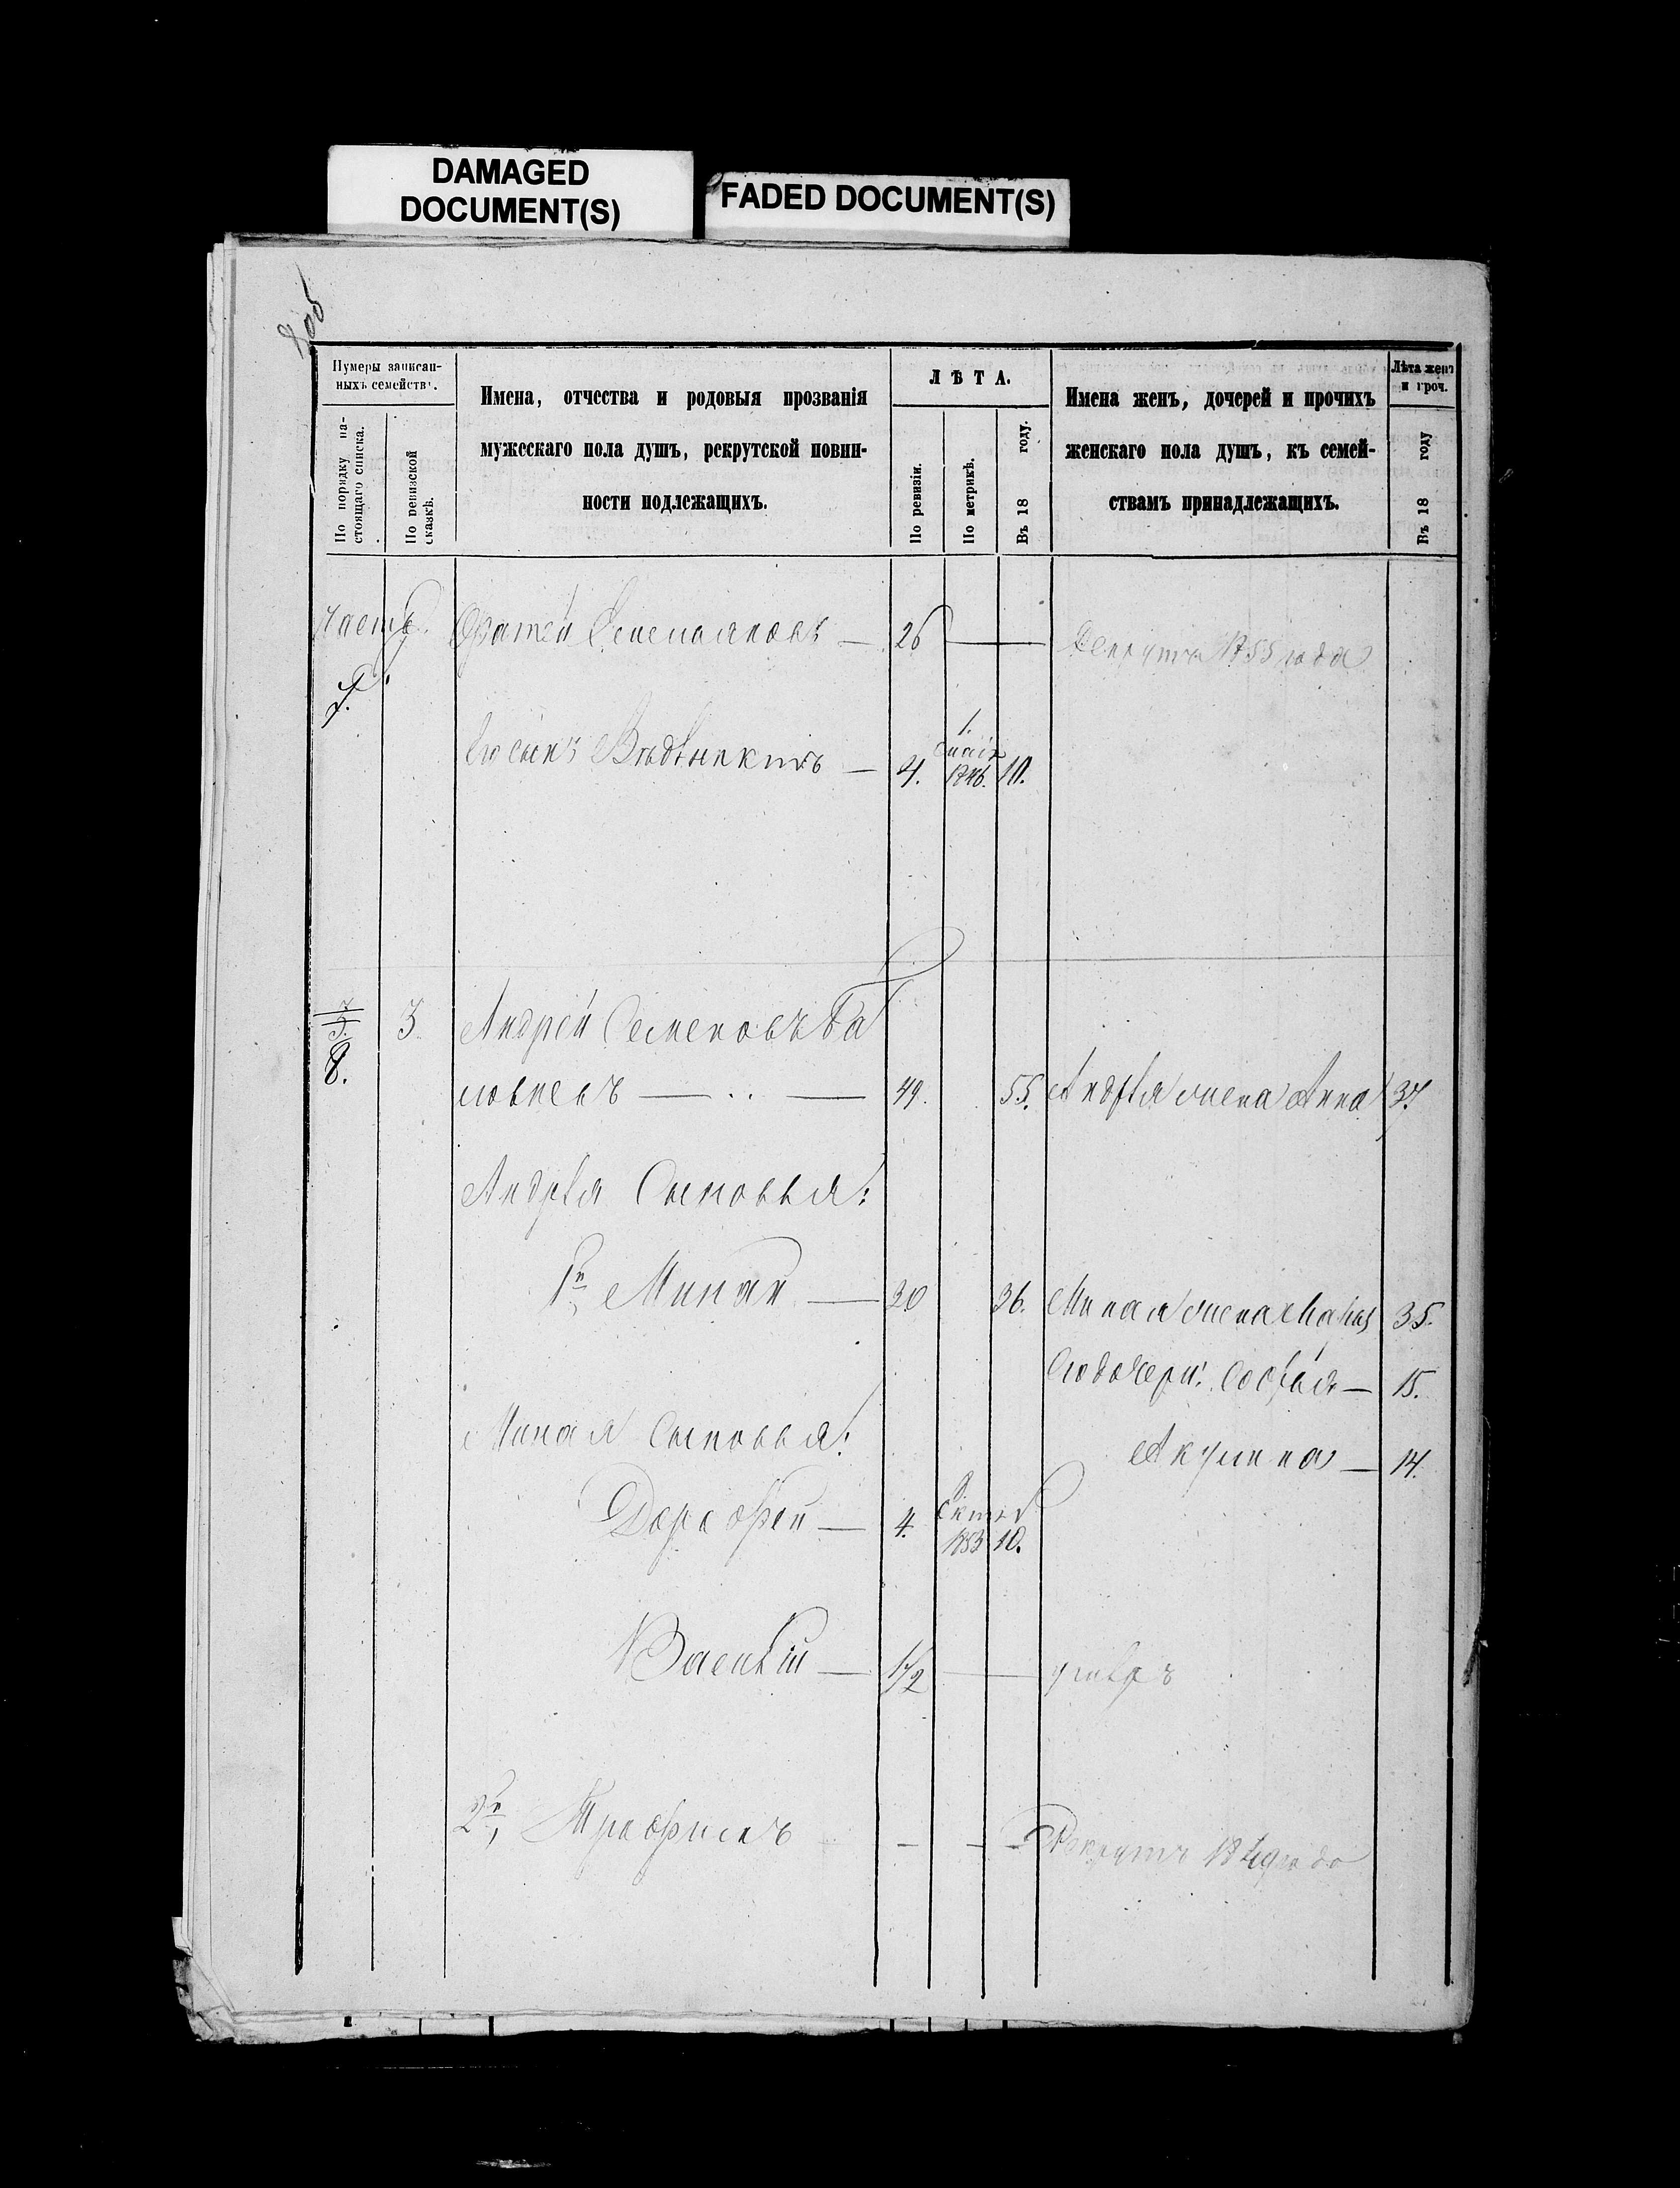 DAMAGED
DOCUMENT(S)
FADED DOCUMENT(S)
Нумеры записан-
ныхъ семействъ.
По порядку на-
стоящаго списка.
По ревизской
сказкѣ.
Имена, отчества и родовыя прозванія
мужескаго пола душъ, рекрутской повин-
ности подлежащихъ.
ЛѢТА.
По ревизіи.
По метрикѣ.
Въ 18 году.
Имена женъ, дочерей и прочихъ
женскаго пола душъ, къ семей-
ствамъ принадлежащихъ.
Лѣта женъ
и проч.
Въ 18 году
26 Рекрутъ 1855 года
Его сынъ 4. 1. маія 1846. 10.
8. 3 Андрей Семеновъ Ба
49. 55. Андрѣя жена Анна 37
Андрѣя Сыновья:
1й, Минай 30 36. Миная жена 35.
дочери: Софья 15.
Миная Сыновья:
Акулина 14.
Дорофей 4. 1853 10.
Василій 1/2 умеръ
2й, Трофимъ Рекрутъ 1849 года